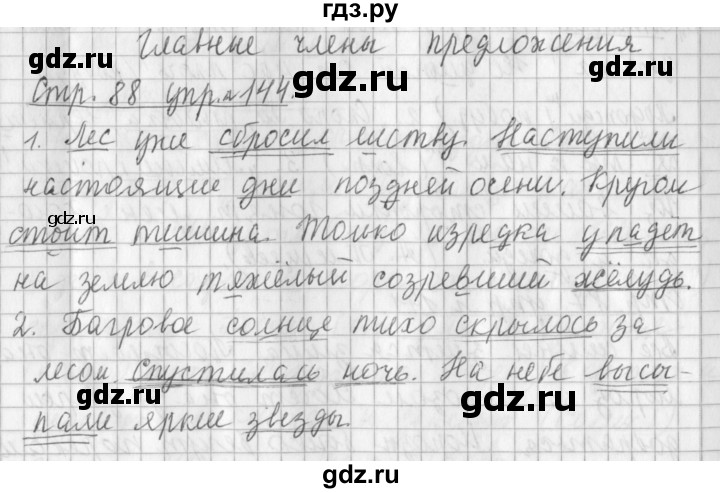 гдз.ру
Главные члены предложения
gdz.ru gdz.ru
Стр. 88 упр. 144.
1. Лес уже сбросил листву. Наступили
настоящие дни поздней осени. Кругом
стоит тишина. Только изредка упадёт
на землю тяжёлый созревший жёлудь.
2. Багровое солнце тихо скрылось за
лесом Спустилась ночь. На небе высы-
пали яркие звезды.
gdz.ru gdz.ru
gdz.ru gdz.ru
gdz.ru gdz.ru
gdz.ru gdz.ru